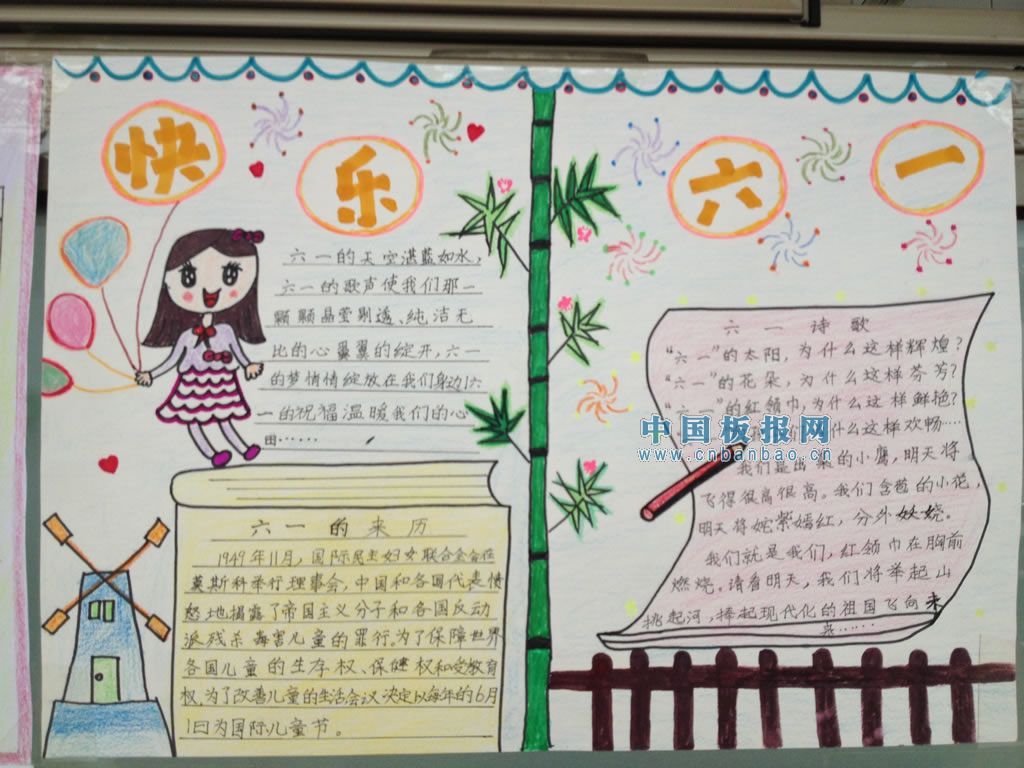 快乐六一
六一的天空湛蓝如水，
六一的歌声使我们那一
颗颗晶莹剔透、纯洁无
比的心翼翼的绽开，六一
的梦情情绽放在我们身边六
一的祝福温暖我们的心
田……
六一的来历
1949年11月，国际民主妇女联合会在
莫斯科举行理事会，中国和各国代表愤
怒地揭露了帝国主义分子和各国反动
派残杀毒害儿童的罪行为了保障世界
各国儿童的生存权、保健权和受教育
权，为了改善儿童的生活会议决定以每年的6月
1日为国际儿童节。
六一诗歌
“六一”的太阳，为什么这样辉煌？
“六一”的花朵，为什么这样芬芳？
“六一”的红领巾，为什么这样鲜艳？
什么这样欢畅……
我们是出巢的小鹰，明天将
飞得很高很高。我们含苞的小花，
明天将姹紫嫣红，分外妖娆。
我们就是我们，红领巾在胸前
燃烧。请看明天，我们将举起山
挑起河，捧起现代化的祖国飞向未
来……
中国板报网
www.cnbanbao.cn